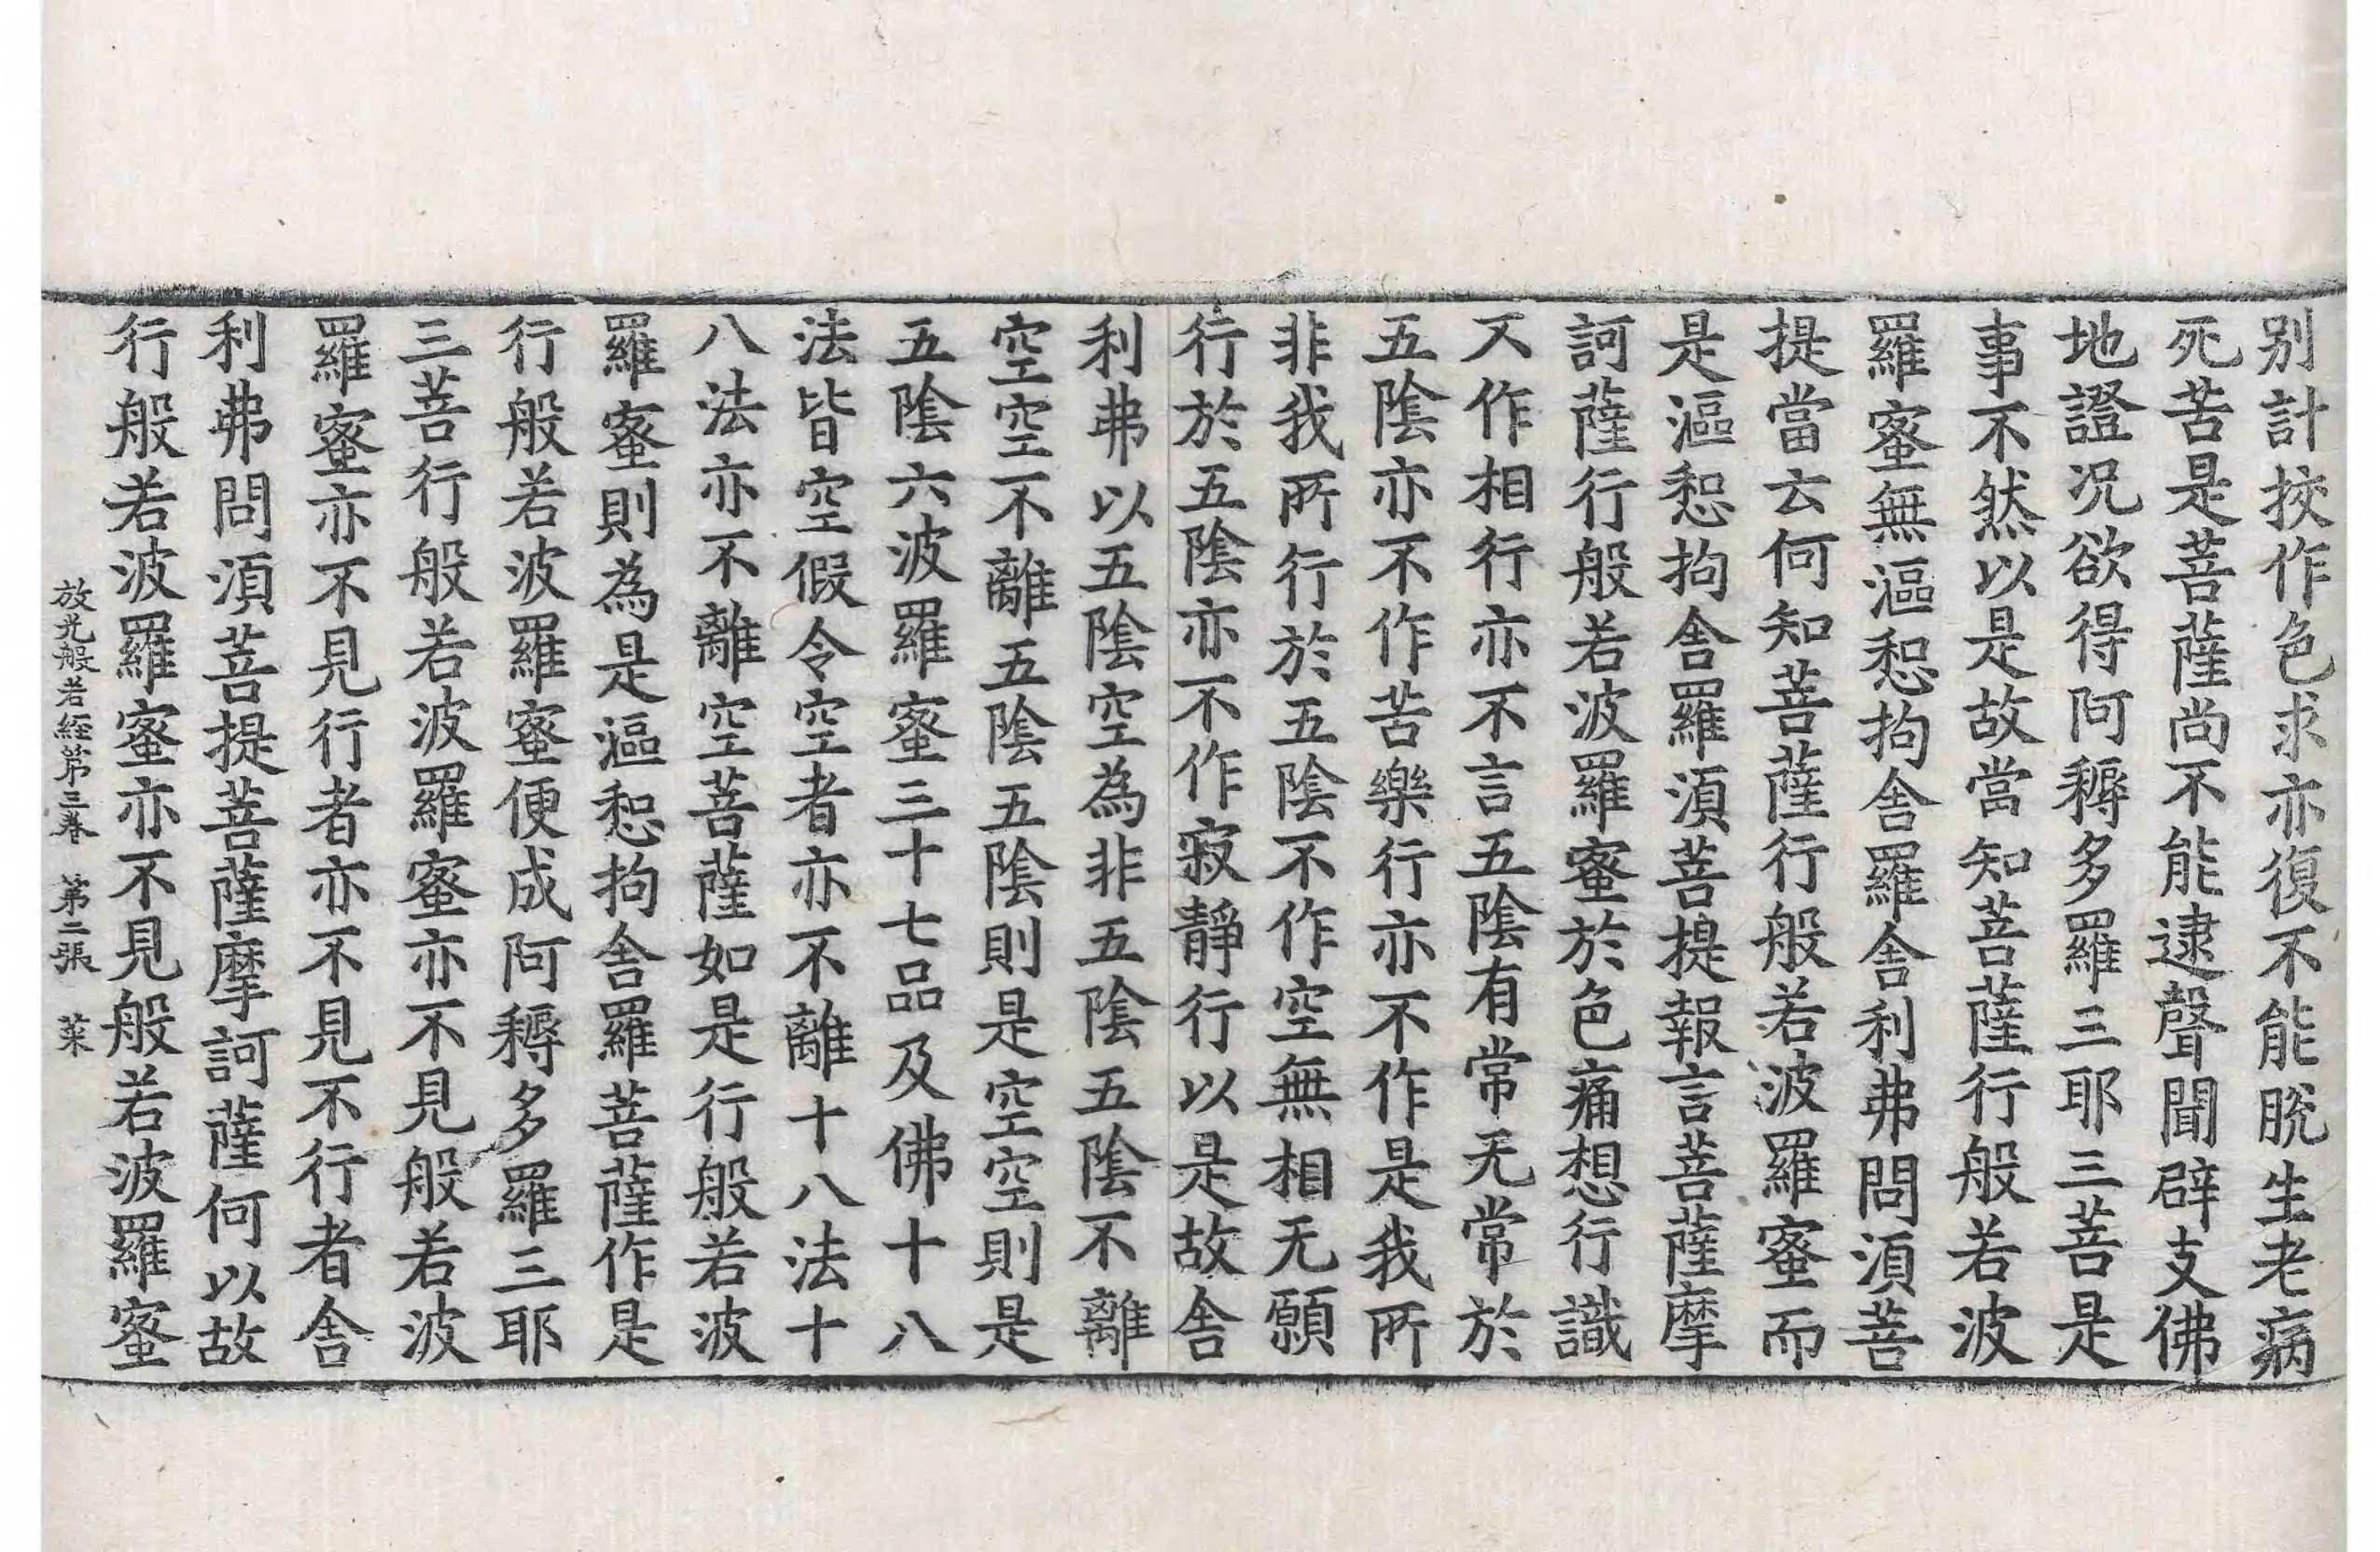 别計挍作色求亦復不能脫生老病
死苦是菩薩尚不能逮聲聞辟支佛
地證況欲得阿耨多羅三耶三菩是
事不然以是故當知菩薩行般若波
羅蜜無漚惒拘舍羅舍利弗問湏菩
提當云何知菩薩行般若波羅蜜而
是漚惒拘舍羅湏菩提報言菩薩摩
訶薩行般若波羅蜜於色痛想行識
不作相行亦不言五陰有常无常於
五陰亦不作苦樂行亦不作是我所
非我所行於五陰不作空無相无願
行於五陰亦不作寂靜行以是故舍
利弗以五陰空為非五陰五陰不離
空空不離五陰五陰則是空空則是
五陰六波羅蜜三十七品及佛十八
法皆空假令空者亦不離十八法十
八法亦不離空菩薩如是行般若波
羅蜜則為是漚惒拘舍羅菩薩作是
行般若波羅蜜便成阿耨多羅三耶
三菩行般若波羅蜜亦不見般若波
羅蜜亦不見行者亦不見不行者舍
利弗問湏菩提菩薩摩訶薩何以故
行般若波羅蜜亦不見般若波羅蜜
放光般若經第三卷 第二張 菜